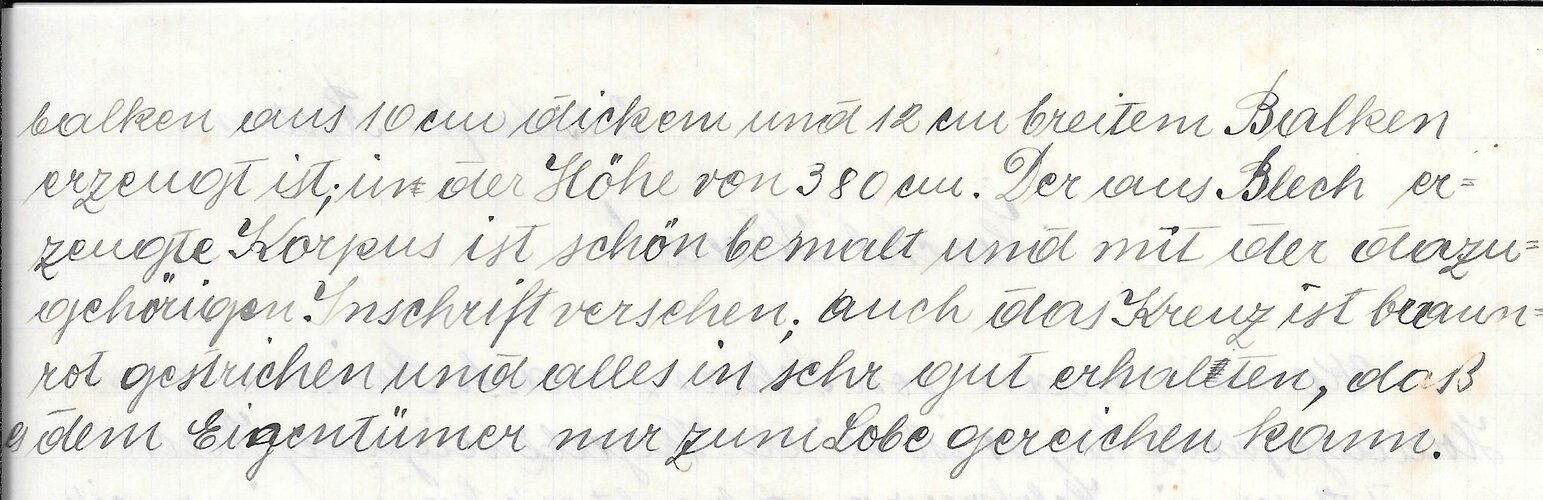 balken aus 10 cm dickem und 12 cm breitem Balken
erzeugt ist, in der Höhe von 380 cm. Der aus Blech er=
zeugte Korpus ist schön bemalt und mit der dazu=
gehörigen Inschrift versehen, auch das Kreuz ist braun=
rot gestrichen und alles in sehr gut erhalten, daß
es dem Eigentümer nur zum Lobe gereichen kann.